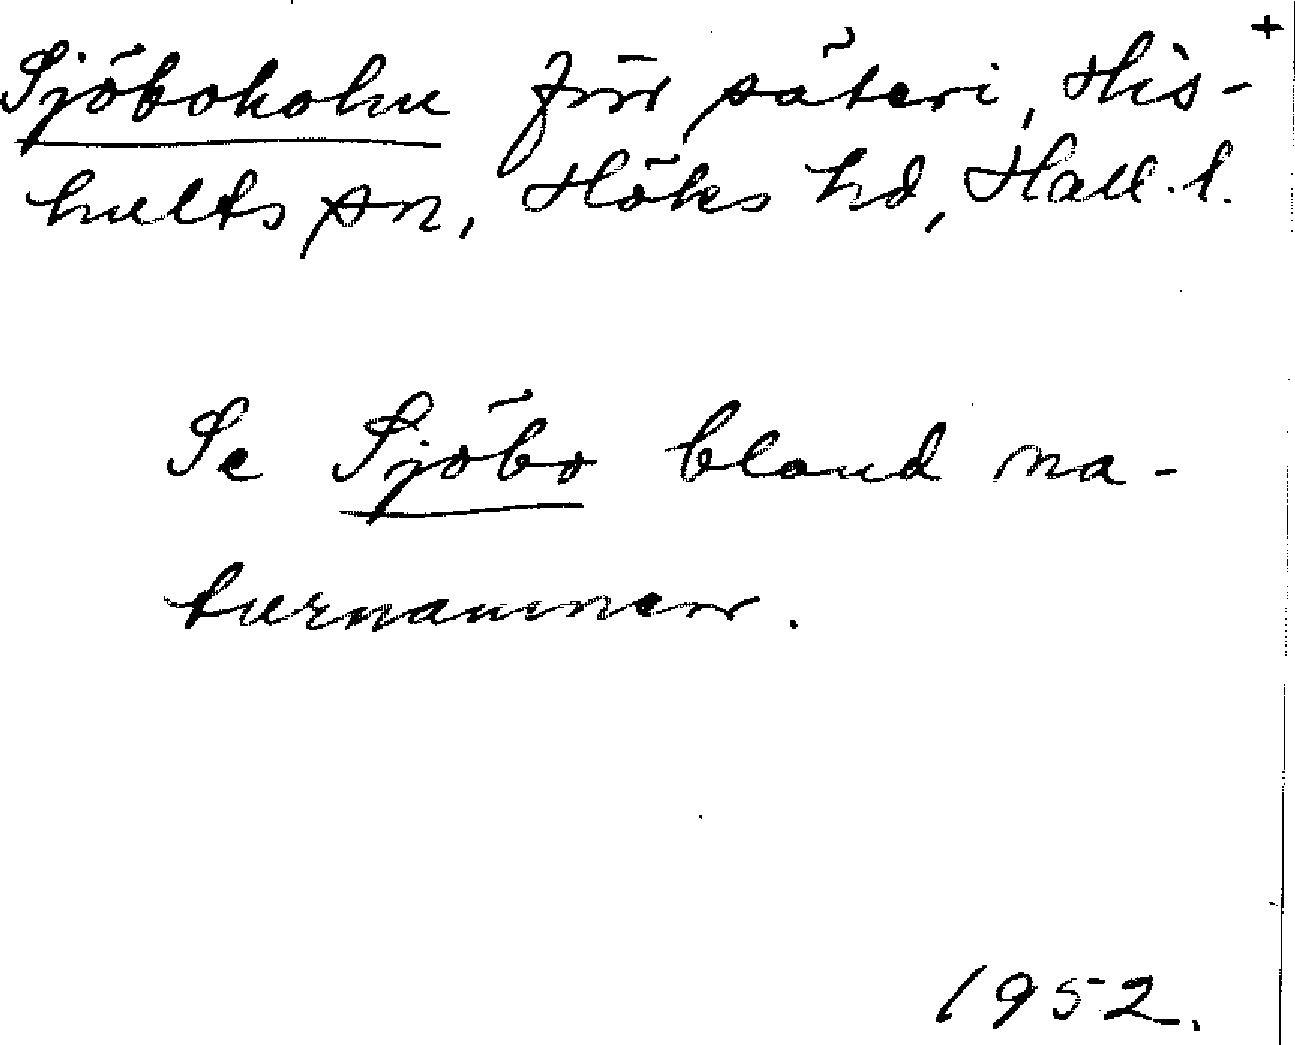 Sjöboholm förr säteri, His- +
hults sn, Höks hd, Hall. l.
Se Sjöbo bland na-
turnamnen.
1952.